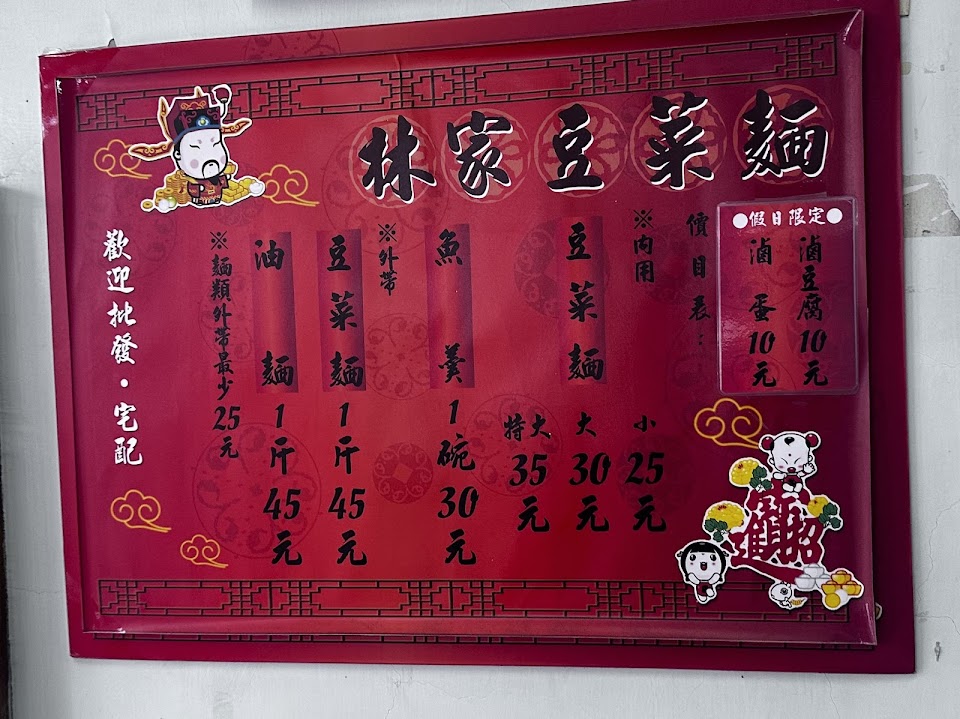 林家豆菜麵
●假日限定●
滷豆腐10元
滷蛋10元
價目表：
※內用
豆菜麵
小25元
大30元
特大35元
魚羹1碗30元
※外帶
豆菜麵1斤45元
油麵1斤45元
※麵類外帶最少25元
歡迎批發·宅配
招財進寶